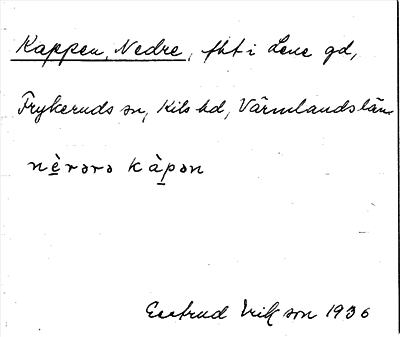 Kappen, Nedre, fht i Lene gd,
Frykeruds sn, Kils hd, Värmlands län
nè̱rərə kàp̱ən
Erik son 1936